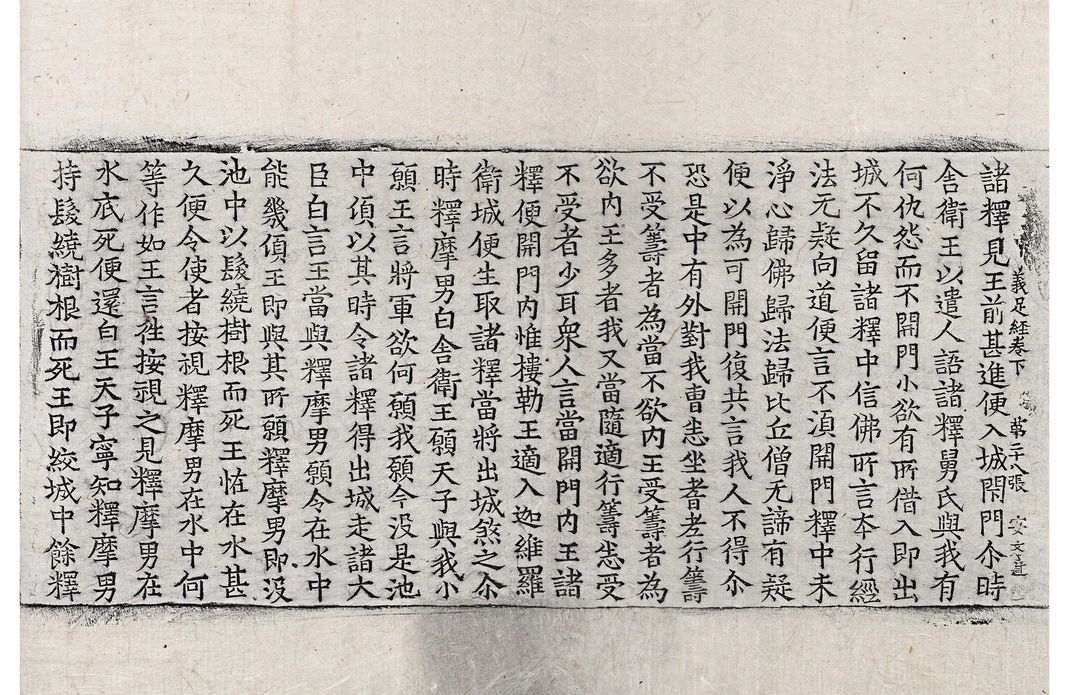 義足經卷下 第二十八張 安文
諸釋見王前甚進便入城閇門尒時
舍衛王以遣人語諸釋舅氏與我有
何仇怨而不開門小欲有所借入即出
城不久留諸釋中信佛所言本行經
法无疑向道便言不湏開門釋中未
淨心歸佛歸法歸比丘僧无諦有疑
便以為可開門復共言我人不得尒
恐是中有外對我曹恚坐耆老行籌
不受籌者為當不欲内王受籌者為
欲内王多者我又當隨適行籌恚受
不受者少耳衆人言當開門内王諸
釋便開門内惟樓勒王適入迦維羅
衛城便生取諸釋當將出城煞之尒
時釋摩男白舍衛王願天子與我小
願王言將軍欲何願我願今没是池
中傾以其時令諸釋得出城走諸大
臣白言王當與釋摩男願令在水中
能幾傾王即與其所願釋摩男即没
池中以髮繞樹根而死王恠在水甚
久便令使者按視釋摩男在水中何
等作如王言徃按視之見釋摩男在
水底死便還白王天子寧知釋摩男
持髮繞樹根而死王即絞城中餘釋